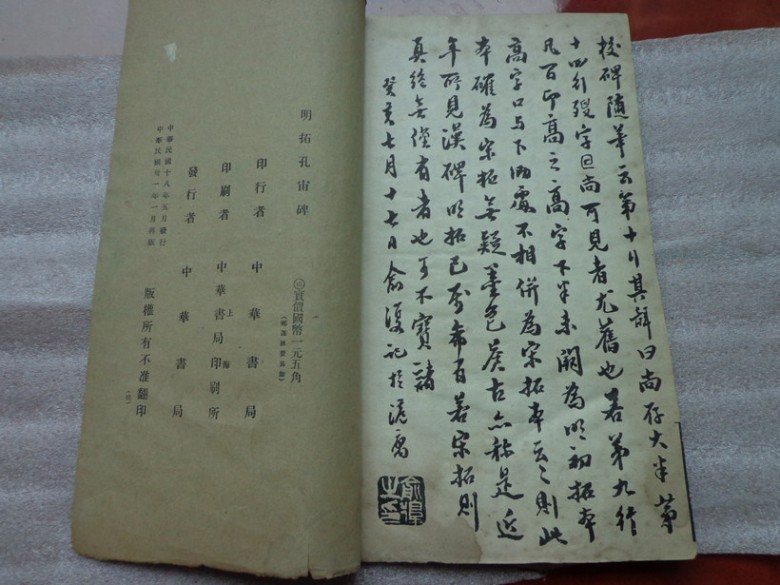 校碑隨筆云第十行其辭曰尚存大半第
十四行殁字旦尚可見者尤舊也若第九行
凡百卬高之高字下半未闕為明初拓本
高字口与下泐處不相併為宋拓本云云則此
本確為宋拓無疑墨色古亦稱是近
年所見漢碑明拓已屬希有若宋拓則
真絕無僅有者也可不寶諸
癸亥七月十七日俞復記於滬寓
明拓孔宙碑
◎實價國幣一元五角
印行者 中華書局
印刷者 中華書局上海印刷所
發行者 中華書局
中華民國十八年五月發行
中華民國廿一年一月再版
版權所有不准翻印